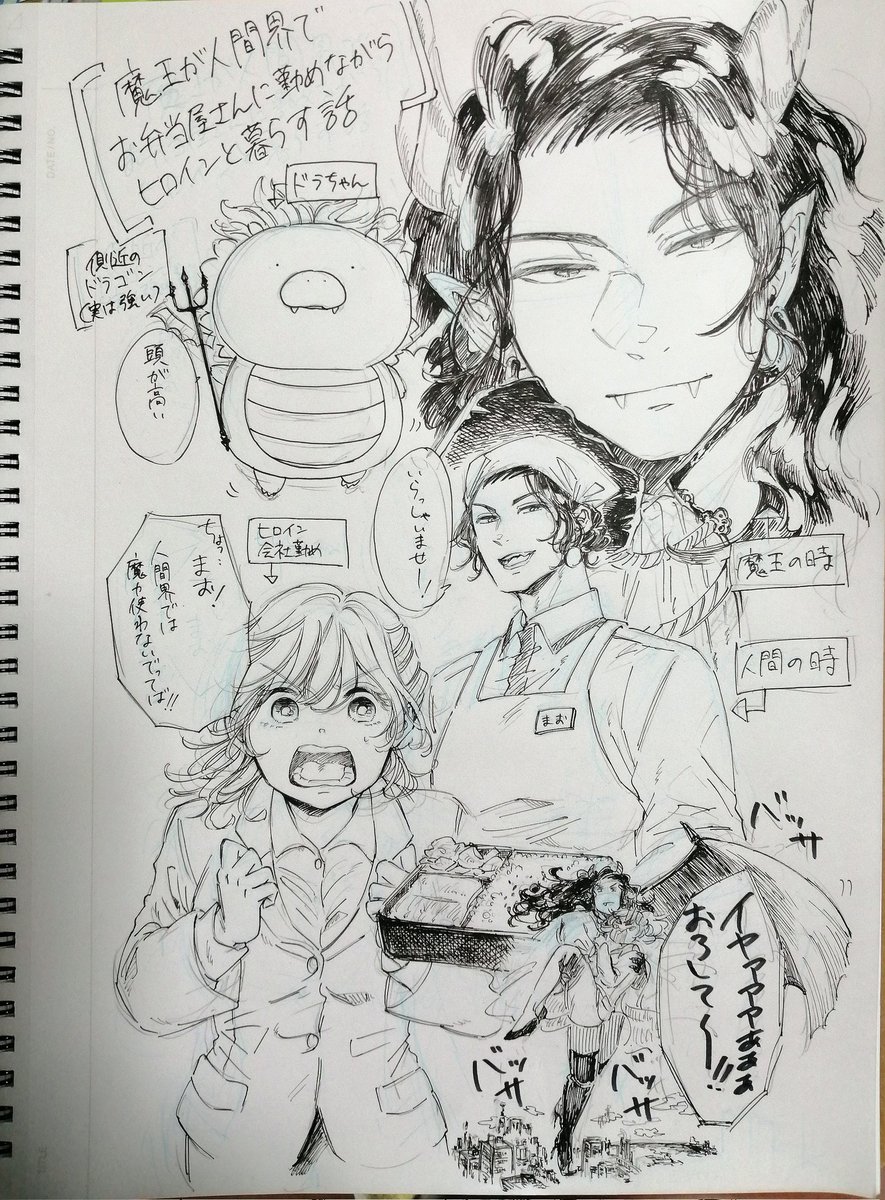 魔王が人間界で
お弁当屋さんに勤めながら
ヒロインと暮らす話
ドラちゃん
側近の
ドラゴン
(実は強い)
頭が高い
いらっしゃいませー!
ヒロイン
会社勤め
ちょっ…
まお!
人間界では
魔力使わないでってば!!
魔王の時
人間の時
まお
バッサ
イヤァァァぁぁぁ
おろして〜!!
バッサ
バッサ
DATE/NO.
TITLE